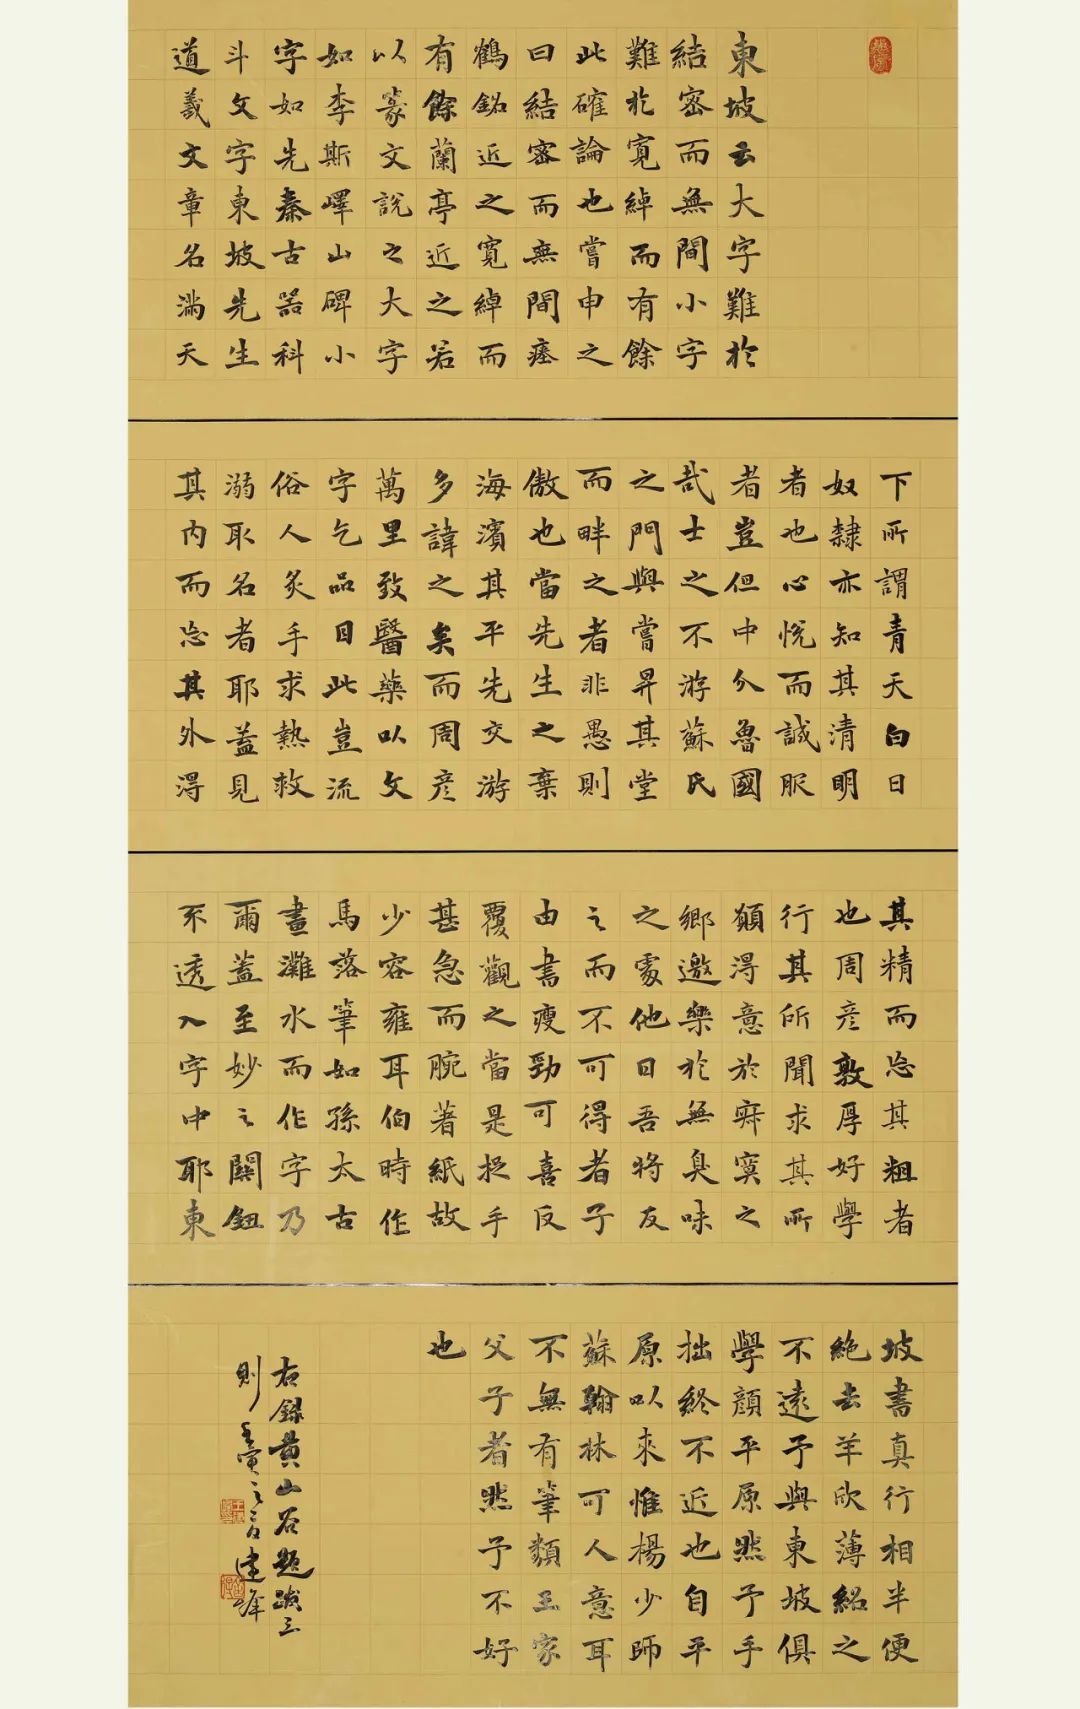 東坡云大字難於
結密而無間小字
難於寬綽而有餘
此確論也嘗申之
曰結密而無間瘞
鶴銘近之寬綽而
有餘蘭亭近之若
以篆文說之大字
如李斯嶧山碑小
字如先秦古器科
斗文字東坡先生
道義文章名滿天
下所謂青天白日
奴隸亦知其清明
者也心悅而誠服
者豈但中分魯國
哉士之不游蘇氏
之門與嘗昇其堂
而畔之者非愚則
傲也當先生之棄
海濱其平先交游
多諱之矣而周彦
萬里致醫藥以文
字乞品目此豈流
俗人炙手求熱救
溺取名者耶蓋見
其內而忘其外得
其精而忘其粗者
也周彦敦厚好學
行其所聞求其所
願得意於寂寞之
鄉邀樂於無臭味
之處他日吾將友
之而不可得者子
由書瘦勁可喜反
覆觀之當是捉手
甚急而腕著紙故
少容雍耳伯時作
馬落筆如孫太古
畫灘水而作字乃
爾蓋至妙之關鈕
不透入字中耶東
坡書真行相半便
絕去羊欣薄紹之
不遠予與東坡俱
學顏平原然予手
拙終不近也自平
原以來惟楊少師
蘇翰林可人意耳
不無有筆類王家
父子者然予不好
也
右錄黄山谷題跋三
則 建峰